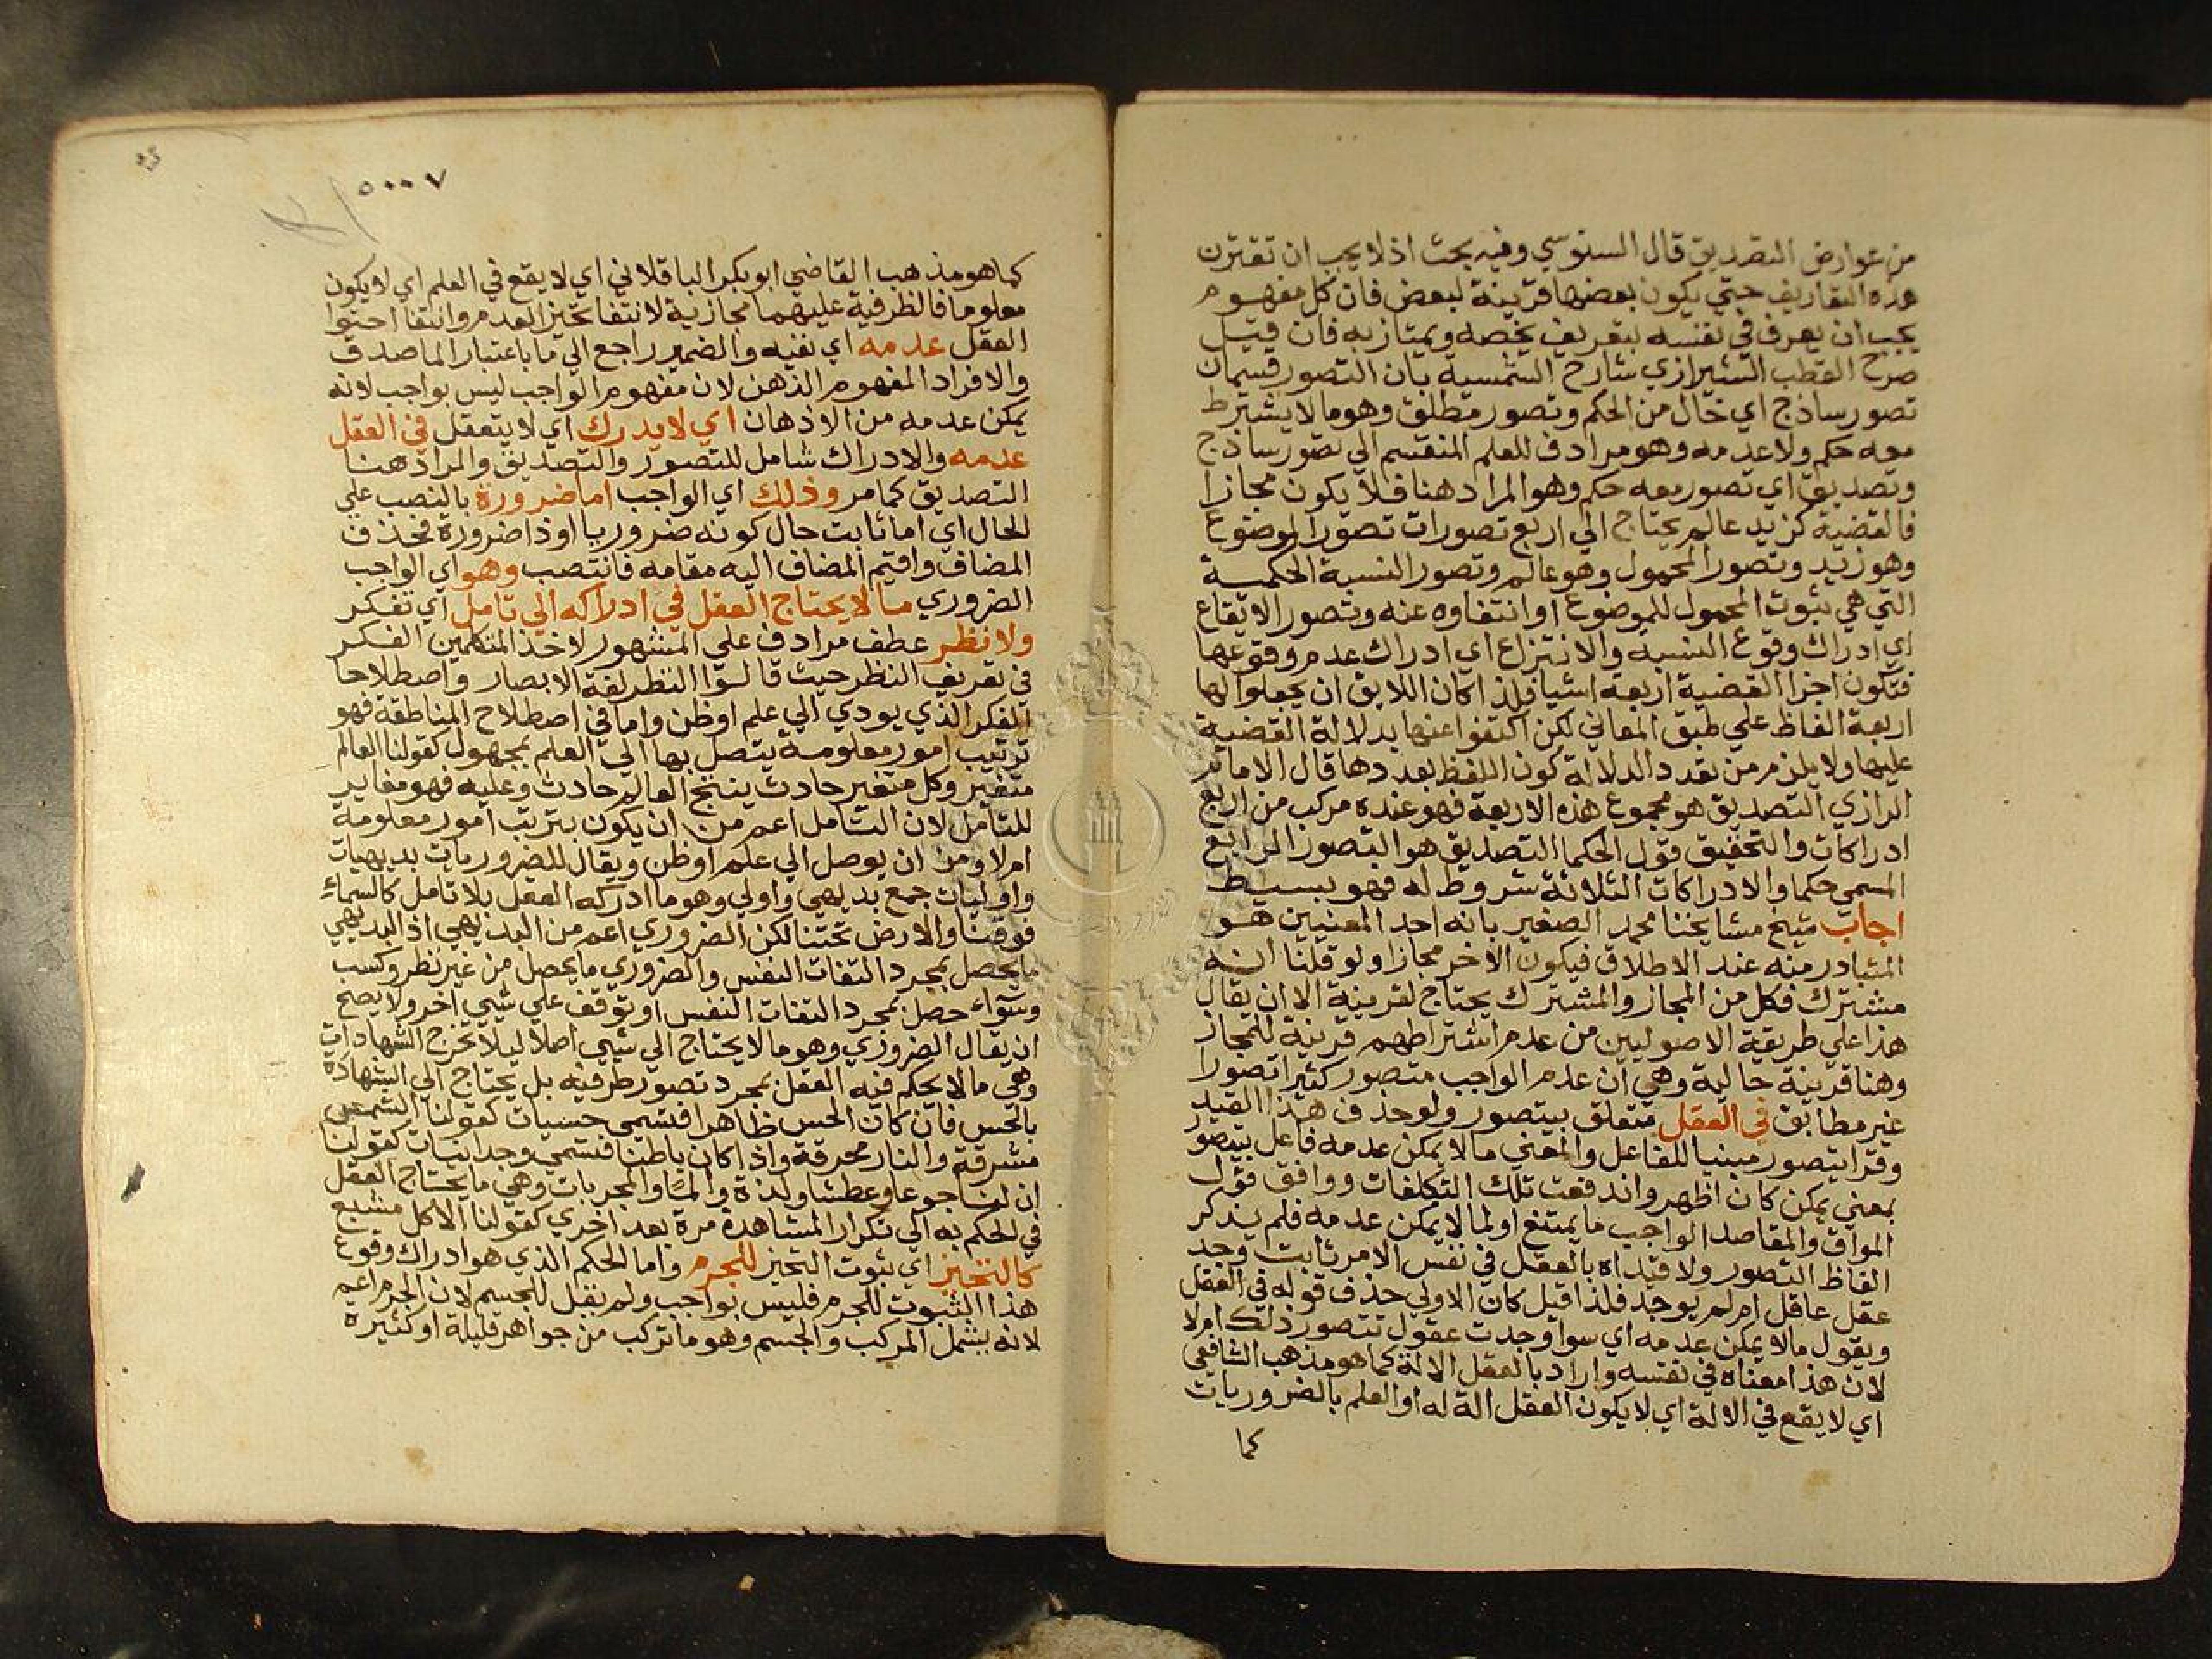 من عوارض التصديق قال السنوسي وفيه بحث اذ لا يجب ان تقترن
هذه التعاريف حتي يكون بعضها قرينة لبعض فان كل مفهوم
يجب ان يعرف في نفسه بتعريف يخصه ويمتاز به فان قيل
صرح القطب الشيرازي شارح الشمسية بان التصور قسمان
تصور ساذج اي خال من الحكم وتصور مطلق وهو ما لا يشترط
معه حكم ولا عدمه وهو مرادف للعلم المنقسم الي تصور ساذج
وتصديق اي تصور معه حكم وهو المراد هنا فلا يكون مجازا
فالقضية كزيد عالم يحتاج الي اربع تصورات تصور الموضوع
وهو زيد وتصور المحمول وهو عالم وتصور النسبة الحكمية
التي هي ثبوت المحمول للموضوع او انتفاوه عنه وتصور الايقاع
اي ادراك وقوع النسبه والانتزاع اي ادراك عدم وقوعها
فتكون اجزا القضية اربعة اشيا فلذا كان اللايق ان يجعلوا لها
اربعة الفاظ علي طبق المعاني لكن اكتفوا عنها بدلالة القضية
عليها ولا يلزم من تعدد الدلالة كون اللفظ بعددها قال الامام
الرازي التصديق هو مجموع هذه الاربعة فهو عنده مركب من اربع
ادراكات والتحقيق قول الحكما التصديق هو التصور الرابع
المسمي حكما والادراكات الثلاثة شروط له فهو بسيط
اجاب شيخ مشايخنا محمد الصغير بانه احد المعنيين هو
المتبادر منه عند الاطلاق فيكون الاخر مجازا ولو قلنا انه
مشترك فكل من المجاز والمشترك يحتاج لقرينة الا ان يقال
هذا علي طريقة الاصوليين من عدم اشتراطهم قرينة للمجاز
وهنا قرينة حالية وهي ان عدم الواجب متصور كثيرا تصورا
غير مطابق في العقل متعلق بيتصور ولو حذف هذا القيد
وقرا يتصور مبنيا للفاعل والمعني ما لا يمكن عدمه فاعل يتصور
بمعني يمكن كان اظهر واندفعت تلك التكلفات ووافق قول
المواقف والمقاصد الواجب ما يمتنع او لما لا يمكن عدمه فلم يذكر
الفاظ التصور ولا قيداه بالعقل في نفس الامر ثابت وجد
عقل عاقل ام لم يوجد فلذا قيل كان الاولي حذف قوله في العقل
ويقول ما لا يمكن عدمه اي سوا وجدت عقول تتصور ذلك ام لا
لان هذا معناه في نفسه واراد بالعقل الالة كما هو مذهب الشافعي
اي لا يقع في الالة اي لا يكون العقل الة له او العلم بالضروريات
كما
٥٠٠٠٧
كما هو مذهب القاضي ابو بكر الباقلاني اي لا يقع في العلم اي لا يكون
معلوما فالظرفية عليهما مجازية لانتفا تحيز العدم وانتفا احتوا
العقل عدمه اي نفيه والضمير راجع الي ما باعتبار الماصدق
والافراد المفهوم الذهن لان مفهوم الواجب ليس بواجب لانه
يمكن عدمه من الاذهان اي لا يدرك اي لا يتعقل في العقل
عدمه والادراك شامل للتصور والتصديق والمراد هنا
التصديق كما مر وذلك اي الواجب اما ضرورة بالنصب علي
الحال اي اما ثابت حال كونه ضروريا او ذا ضرورة فحذف
المضاف واقيم المضاف اليه مقامه فانتصب وهو اي الواجب
الضروري ما لا يحتاج العقل في ادراكه الي تامل اي تفكر
ولا نظر عطف مرادف علي المشهور لاخذ المتكلمين الفكر
في تعريف النظر حيث قالوا النظر لغة الابصار واصطلاحا
الفكر الذي يودي الي علم او ظن واما في اصطلاح المناطقة فهو
ترتيب امور معلومة يتصل بها الي العلم بمجهول كقولنا العالم
متغير وكل متغير حادث ينتج العالم حادث وعليه فهو مغاير
للتامل لان التامل اعم من ان يكون بترتيب امور معلومة
ام لا ومن ان يوصل الي علم او ظن ويقال للضروريات بديهيات
واوليات جمع بديهي واولي وهو ما ادركه العقل بلا تامل كالسماء
فوقنا والارض تحتنا لكن الضروري اعم من البديهي اذ البديهي
ما يحصل بمجرد التفات النفس والضروري ما يحصل من غير نظر وكسب
وسواء حصل بمجرد التفات النفس او توقف علي شيي اخر ولا يصح
ان يقال الضروري وهو ما لا يحتاج الي شيي اصلا ليلا تخرج الشهادات
وهي ما لا يحكم فيه العقل بمجرد تصور طرفيه بل يحتاج الي الشهادة
بالحس فان كان الحس ظاهرا فتسمي حسيات كقولنا الشمس
مشرقة والنار محرقة واذا كان باطنا فتسمي وجدانيات كقولنا
ان لنا جوعا وعطشا ولذة والما والمجربات وهي ما يحتاج العقل
في الحكم به الي تكرار المشاهدة مرة بعد اخري كقولنا الاكل مشبع
كالتحيز اي ثبوت التحيز للجرم واما الحكم الذي هو ادراك وقوع
هذا الثبوت للجرم فليس بواجب ولم يقل للجسم لان الجرم اعم
لانه يشمل المركب والجسم وهو ما تركب من جواهر قليلة او كثيرة